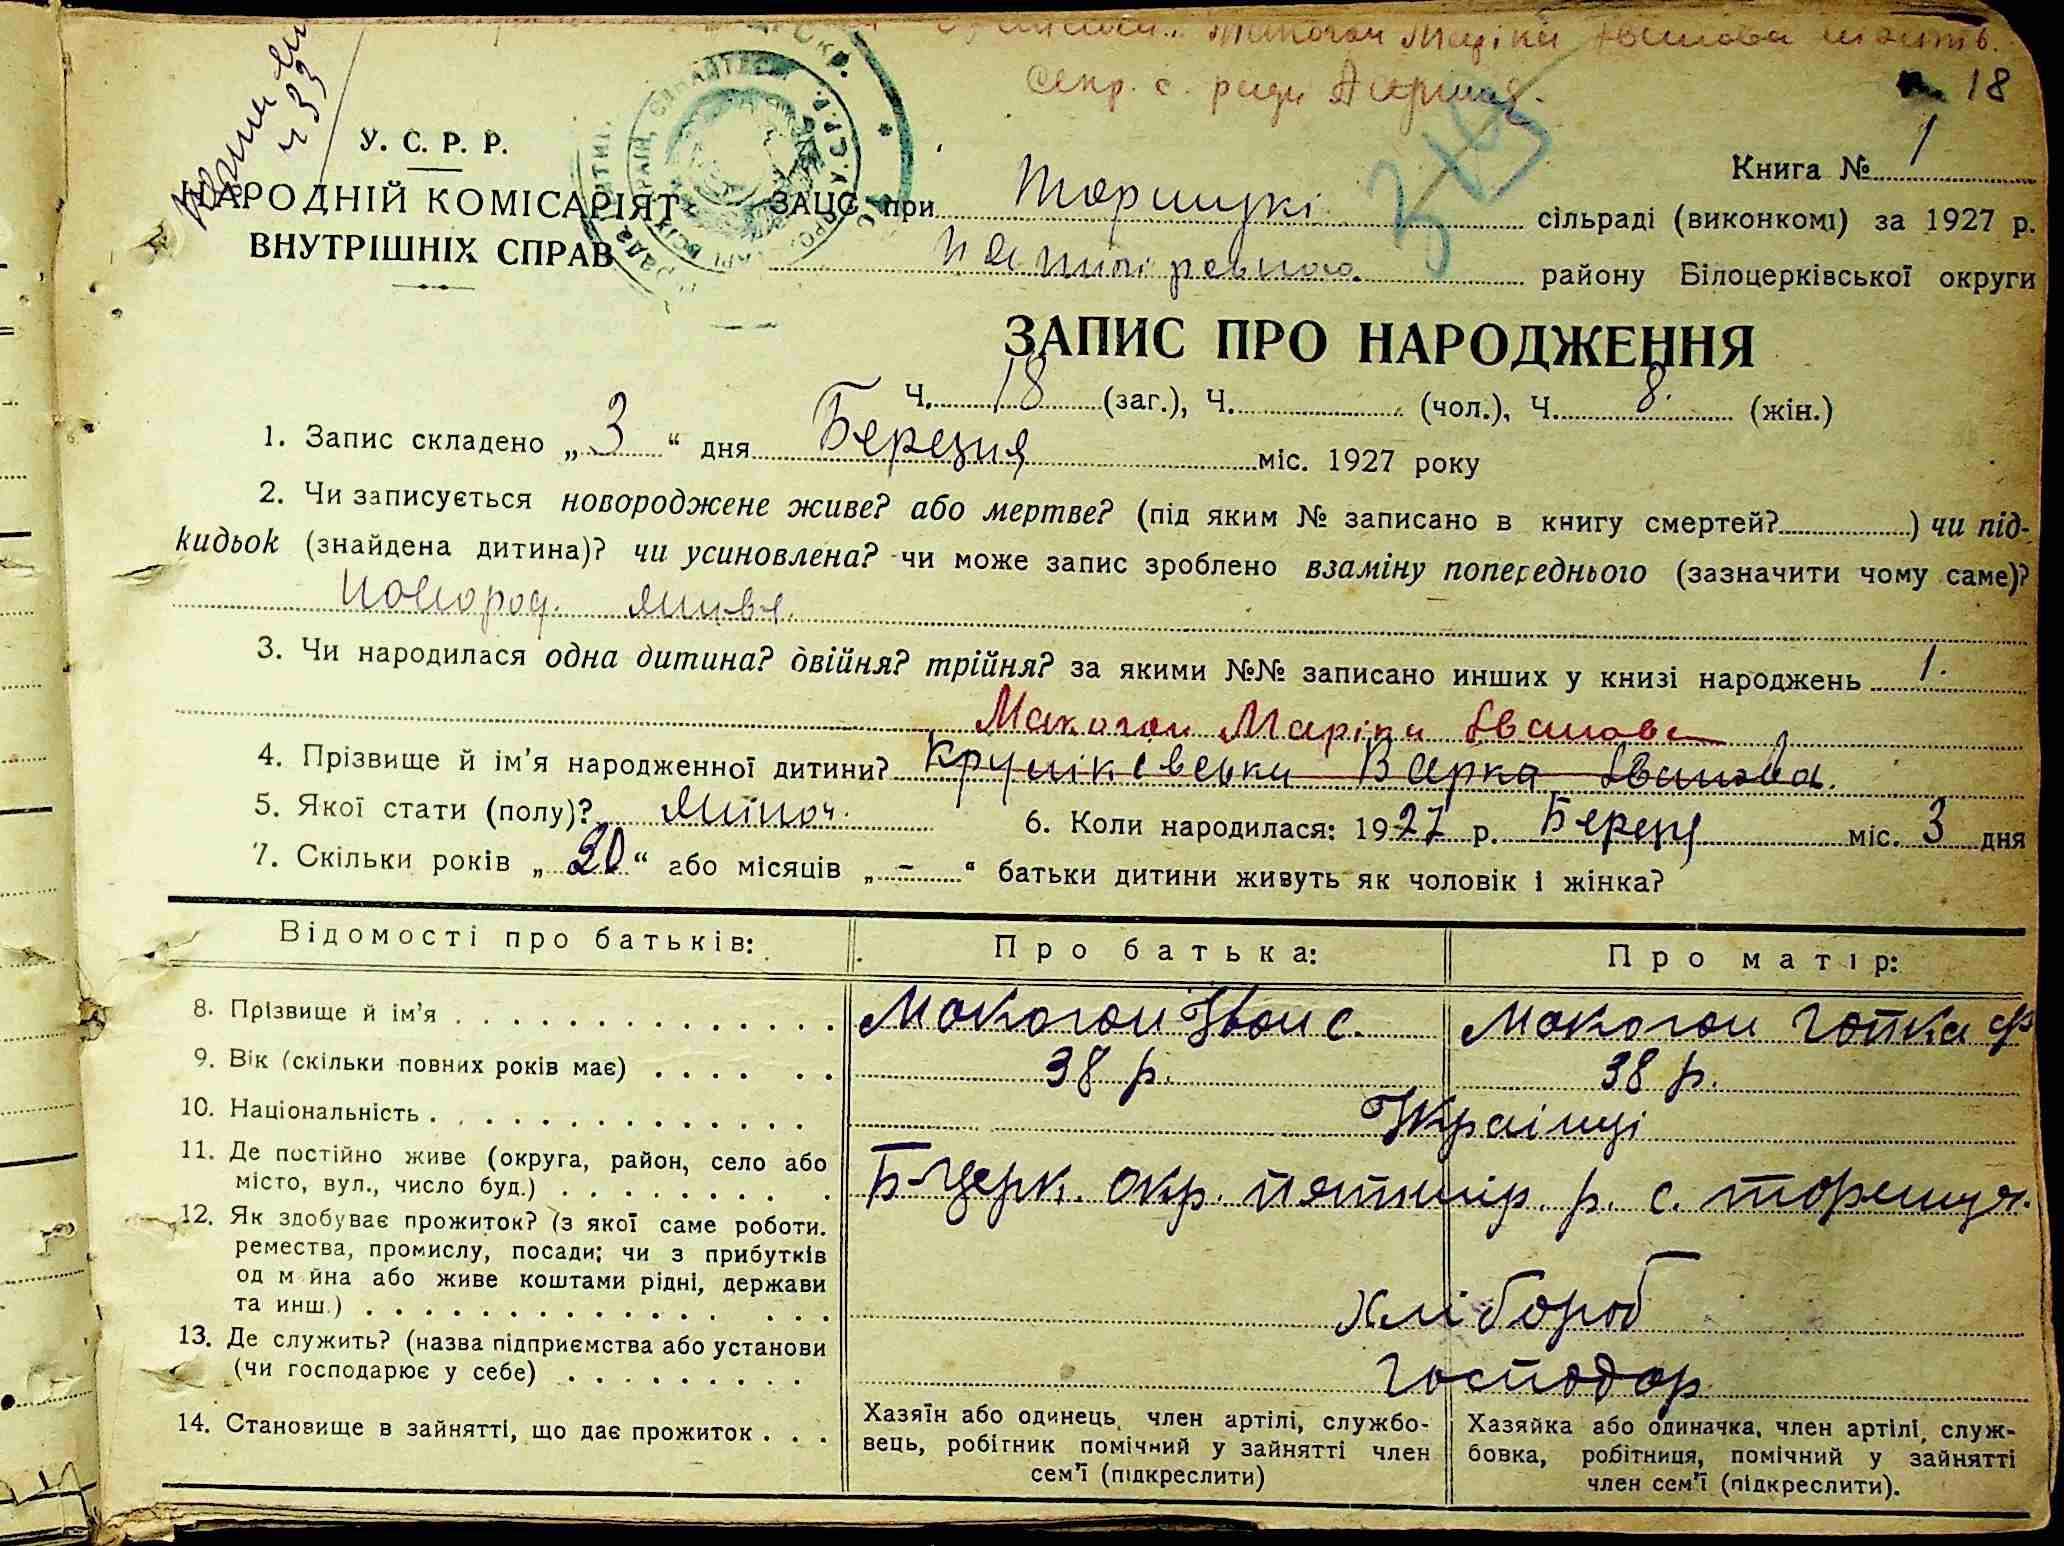 Макогон Маріка Іванова
Секр. с. ради
18
У. С. Р. Р.
НАРОДНІЙ КОМІСАРІЯТ
ВНУТРІШНІХ СПРАВ
Книга № 1
ЗАЦС при Торчицкі сільраді (виконкомі) за 1927 р.
району Білоцерківської округи
ЗАПИС ПРО НАРОДЖЕННЯ
Ч. 18 (заг.), Ч. (чол.), Ч. 8. (жін.)
1. Запис складено „ 3 “ дня Березня міс. 1927 року
2. Чи записується новороджене живе? або мертве? (під яким № записано в книгу смертей? ) чи під-
кидьок (знайдена дитина)? чи усиновлена? чи може запис зроблено взаміну попереднього (зазначити чому саме)?
новород. живе.
3. Чи народилася одна дитина? двійня? трійня? за якими №№ записано инших у книзі народжень 1.
Макогон Маріка Іванова
4. Прізвище й ім’я народженної дитини? Варка Іванова.
5. Якої стати (полу)? жіноч. 6. Коли народилася: 1927 р. Березн міс. 3 дня
7. Скільки років „ 20 “ або місяців „ – “ батьки дитини живуть як чоловік і жінка?
Відомості про батьків: Про батька: Про матір:
8. Прізвище й ім’я Макогон Іван С. Макогон Гапка Ф
9. Вік (скільки повних років має) 38 р. 38 р.
10. Національність Українці
11. Де постійно живе (округа, район, село або
місто, вул., число буд.) Б-Церк. окр. пятигір. р. с. торчиця.
12. Як здобуває прожиток? (з якої саме роботи.
ремества, промислу, посади; чи з прибутків
од м йна або живе коштами рідні, держави
та инш.) хлібороб
13. Де служить? (назва підприємства або установи
(чи господарює у себе) господар
14. Становище в зайнятті, що дає прожиток
Хазяїн або одинець, член артілі, службо-
вець, робітник помічний у зайнятті член
сем’ї (підкреслити)
Хазяйка або одиначка, член артілі, служ-
бовка, робітниця, помічний у зайнятті
член сем’ї (підкреслити).